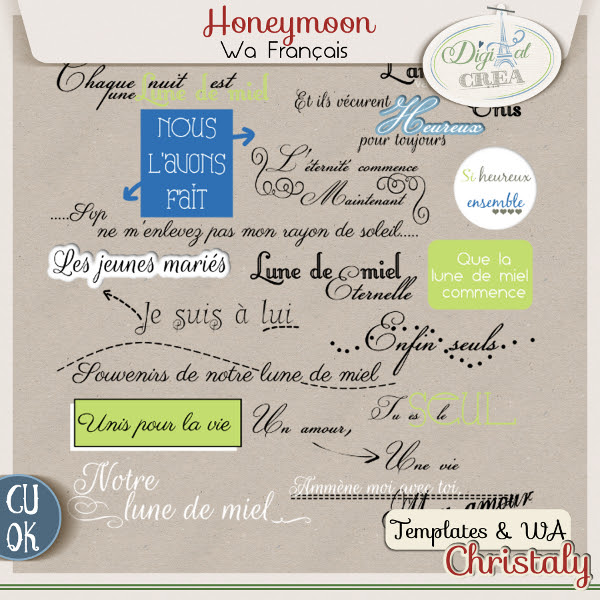 Honeymoon
Wa Français
Digital
CREA
Chaque nuit est
une Lune de miel
Et ils vécurent
Heureux
pour toujours
Unis
NOUS
L'avons
FAIT
L'éternité commence
Maintenant
Si heureux
ensemble
.....Svp
ne m'enlevez pas mon rayon de soleil.....
Les jeunes mariés
Lune de miel
Eternelle
Que la
lune de miel
commence
Je suis à lui
Enfin seuls
Souvenirs de notre lune de miel
Unis pour la vie
Un amour,
Une vie
Tu es le SEUL
Notre
lune de miel
Ammène moi avec toi
amour
CU
OK
Templates & WA
Christaly